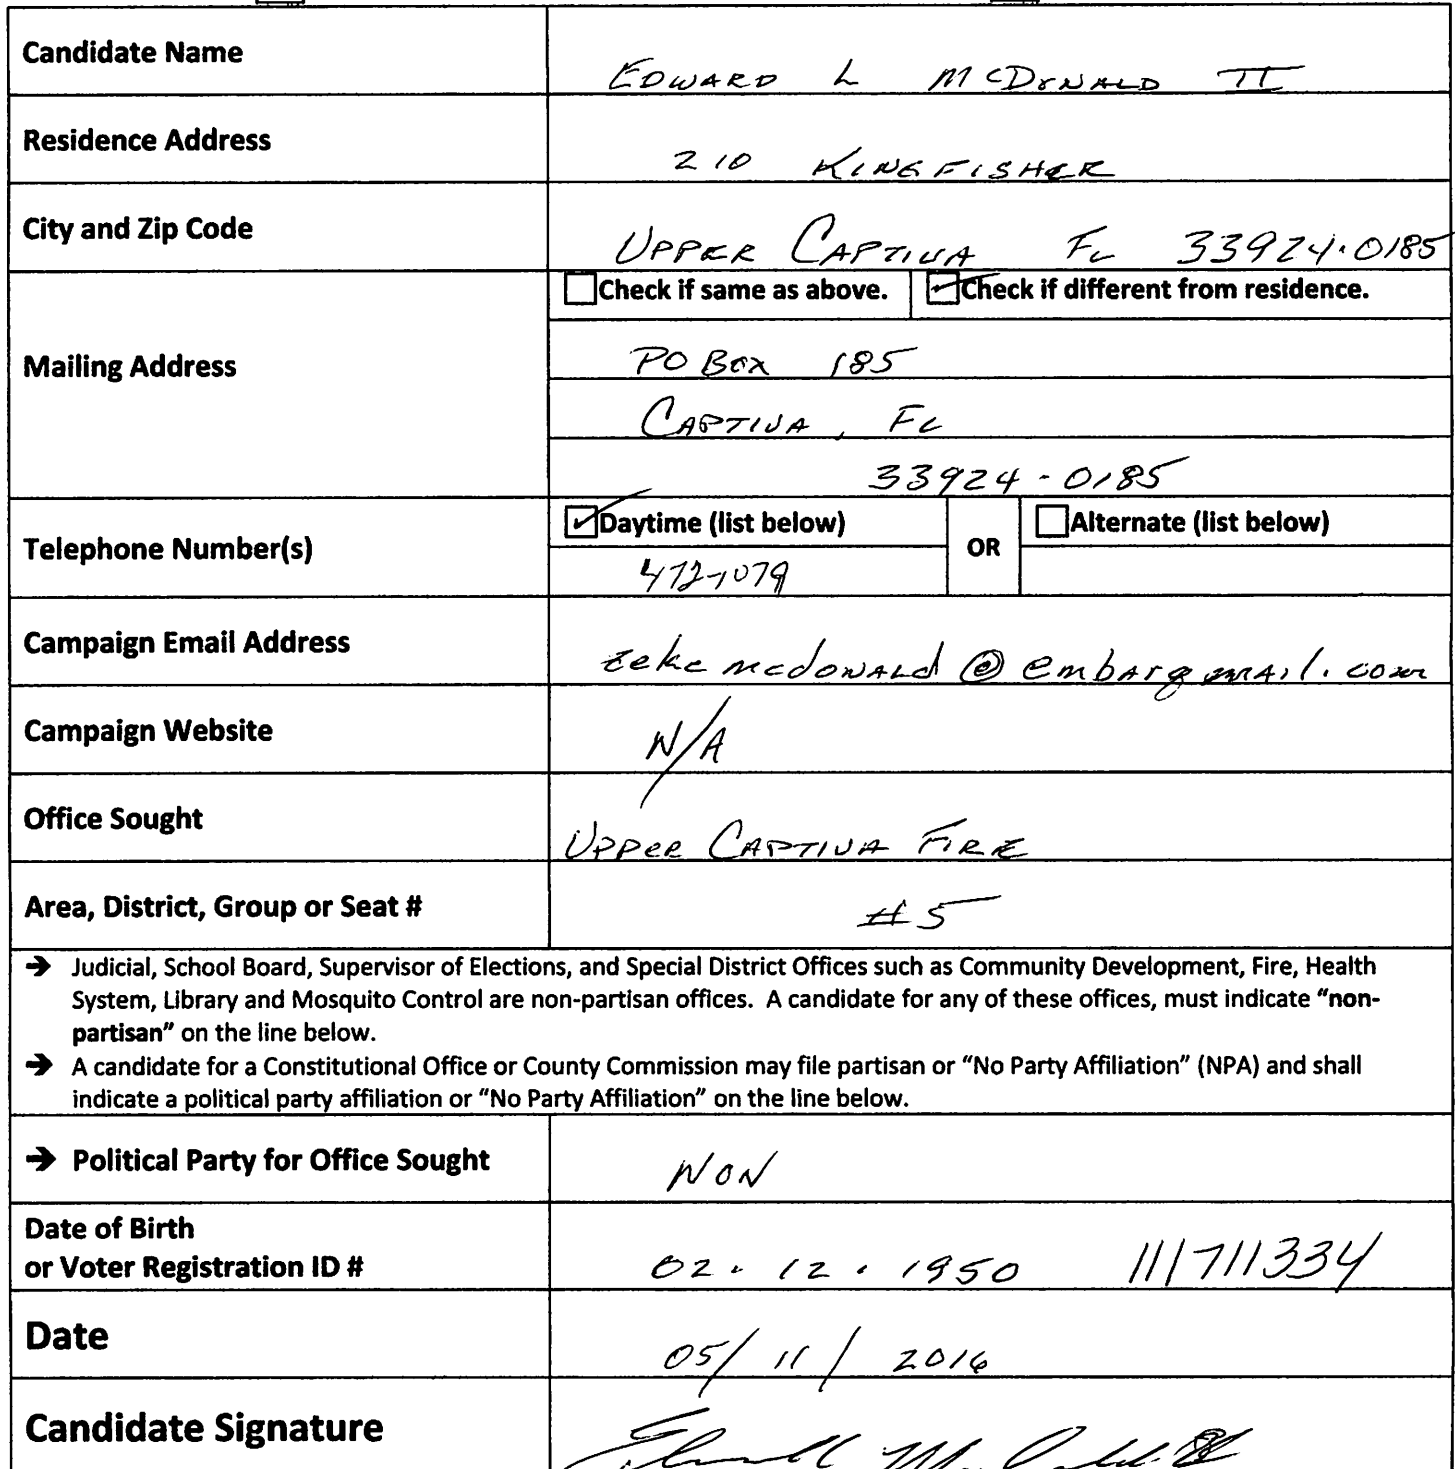 Candidate Name EDWARD L MCDONALD II
Residence Address 210 KINGFISHER
City and Zip Code UPPER CAPTIVA FL 33924-0185
Check if same as above. Check if different from residence.
Mailing Address PO BOX 185
CAPTIVA, FL
33924-0185
Telephone Number(s) Daytime (list below) OR Alternate (list below)
472-1079
Campaign Email Address zekemcdonald@embarqmail.com
Campaign Website N/A
Office Sought UPPER CAPTIVA FIRE
Area, District, Group or Seat # #5
→ Judicial, School Board, Supervisor of Elections, and Special District Offices such as Community Development, Fire, Health
System, Library and Mosquito Control are non-partisan offices. A candidate for any of these offices, must indicate "non-
partisan" on the line below.
→ A candidate for a Constitutional Office or County Commission may file partisan or "No Party Affiliation" (NPA) and shall
indicate a political party affiliation or "No Party Affiliation" on the line below.
→ Political Party for Office Sought NON
Date of Birth
or Voter Registration ID # 02.12.1950 111711334
Date 05/11/2016
Candidate Signature